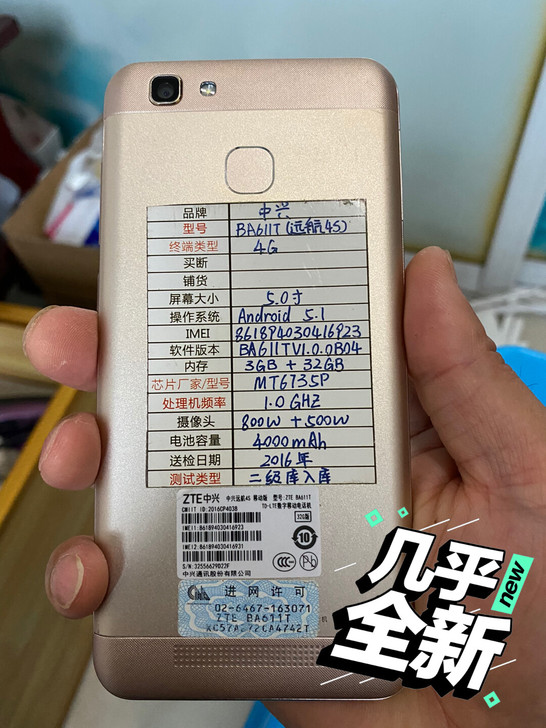 品牌 中兴
型号 BA611T(远航4S)
终端类型 4G
买断
铺货
屏幕大小 5.0寸
操作系统 Android 5.1
IMEI 861894030416923
软件版本 BA611TV1.0.0B04
内存 3GB + 32GB
芯片厂家/型号 MT6735P
处理机频率 1.0 GHZ
摄像头 800W + 500W
电池容量 4000mAh
送检日期 2016年
测试类型 二级库入库
ZTE中兴 中兴远航4S 移动版 型号:ZTE BA611T
CMIIT ID:2016CP4038 TD-LTE数字移动电话机
32G版
IMEI1:861894030416923
IMEI2:861894030416931
10
S/N:32556629D22F
中兴通讯股份有限公司
进网许可
02-6467-163071
ZTE BA611T
机
几乎
全新
new